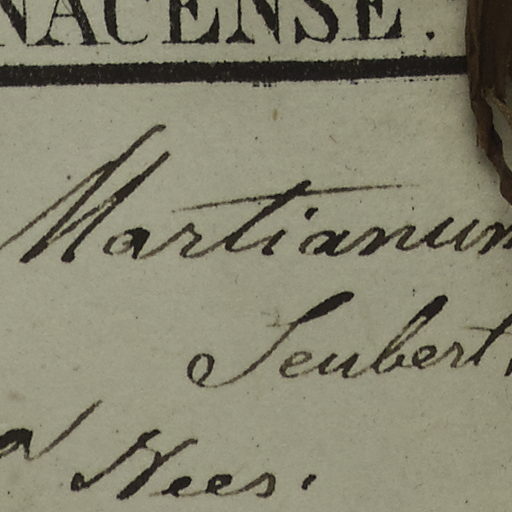 NACENSE.
Martianum
Seubert.
Nees.